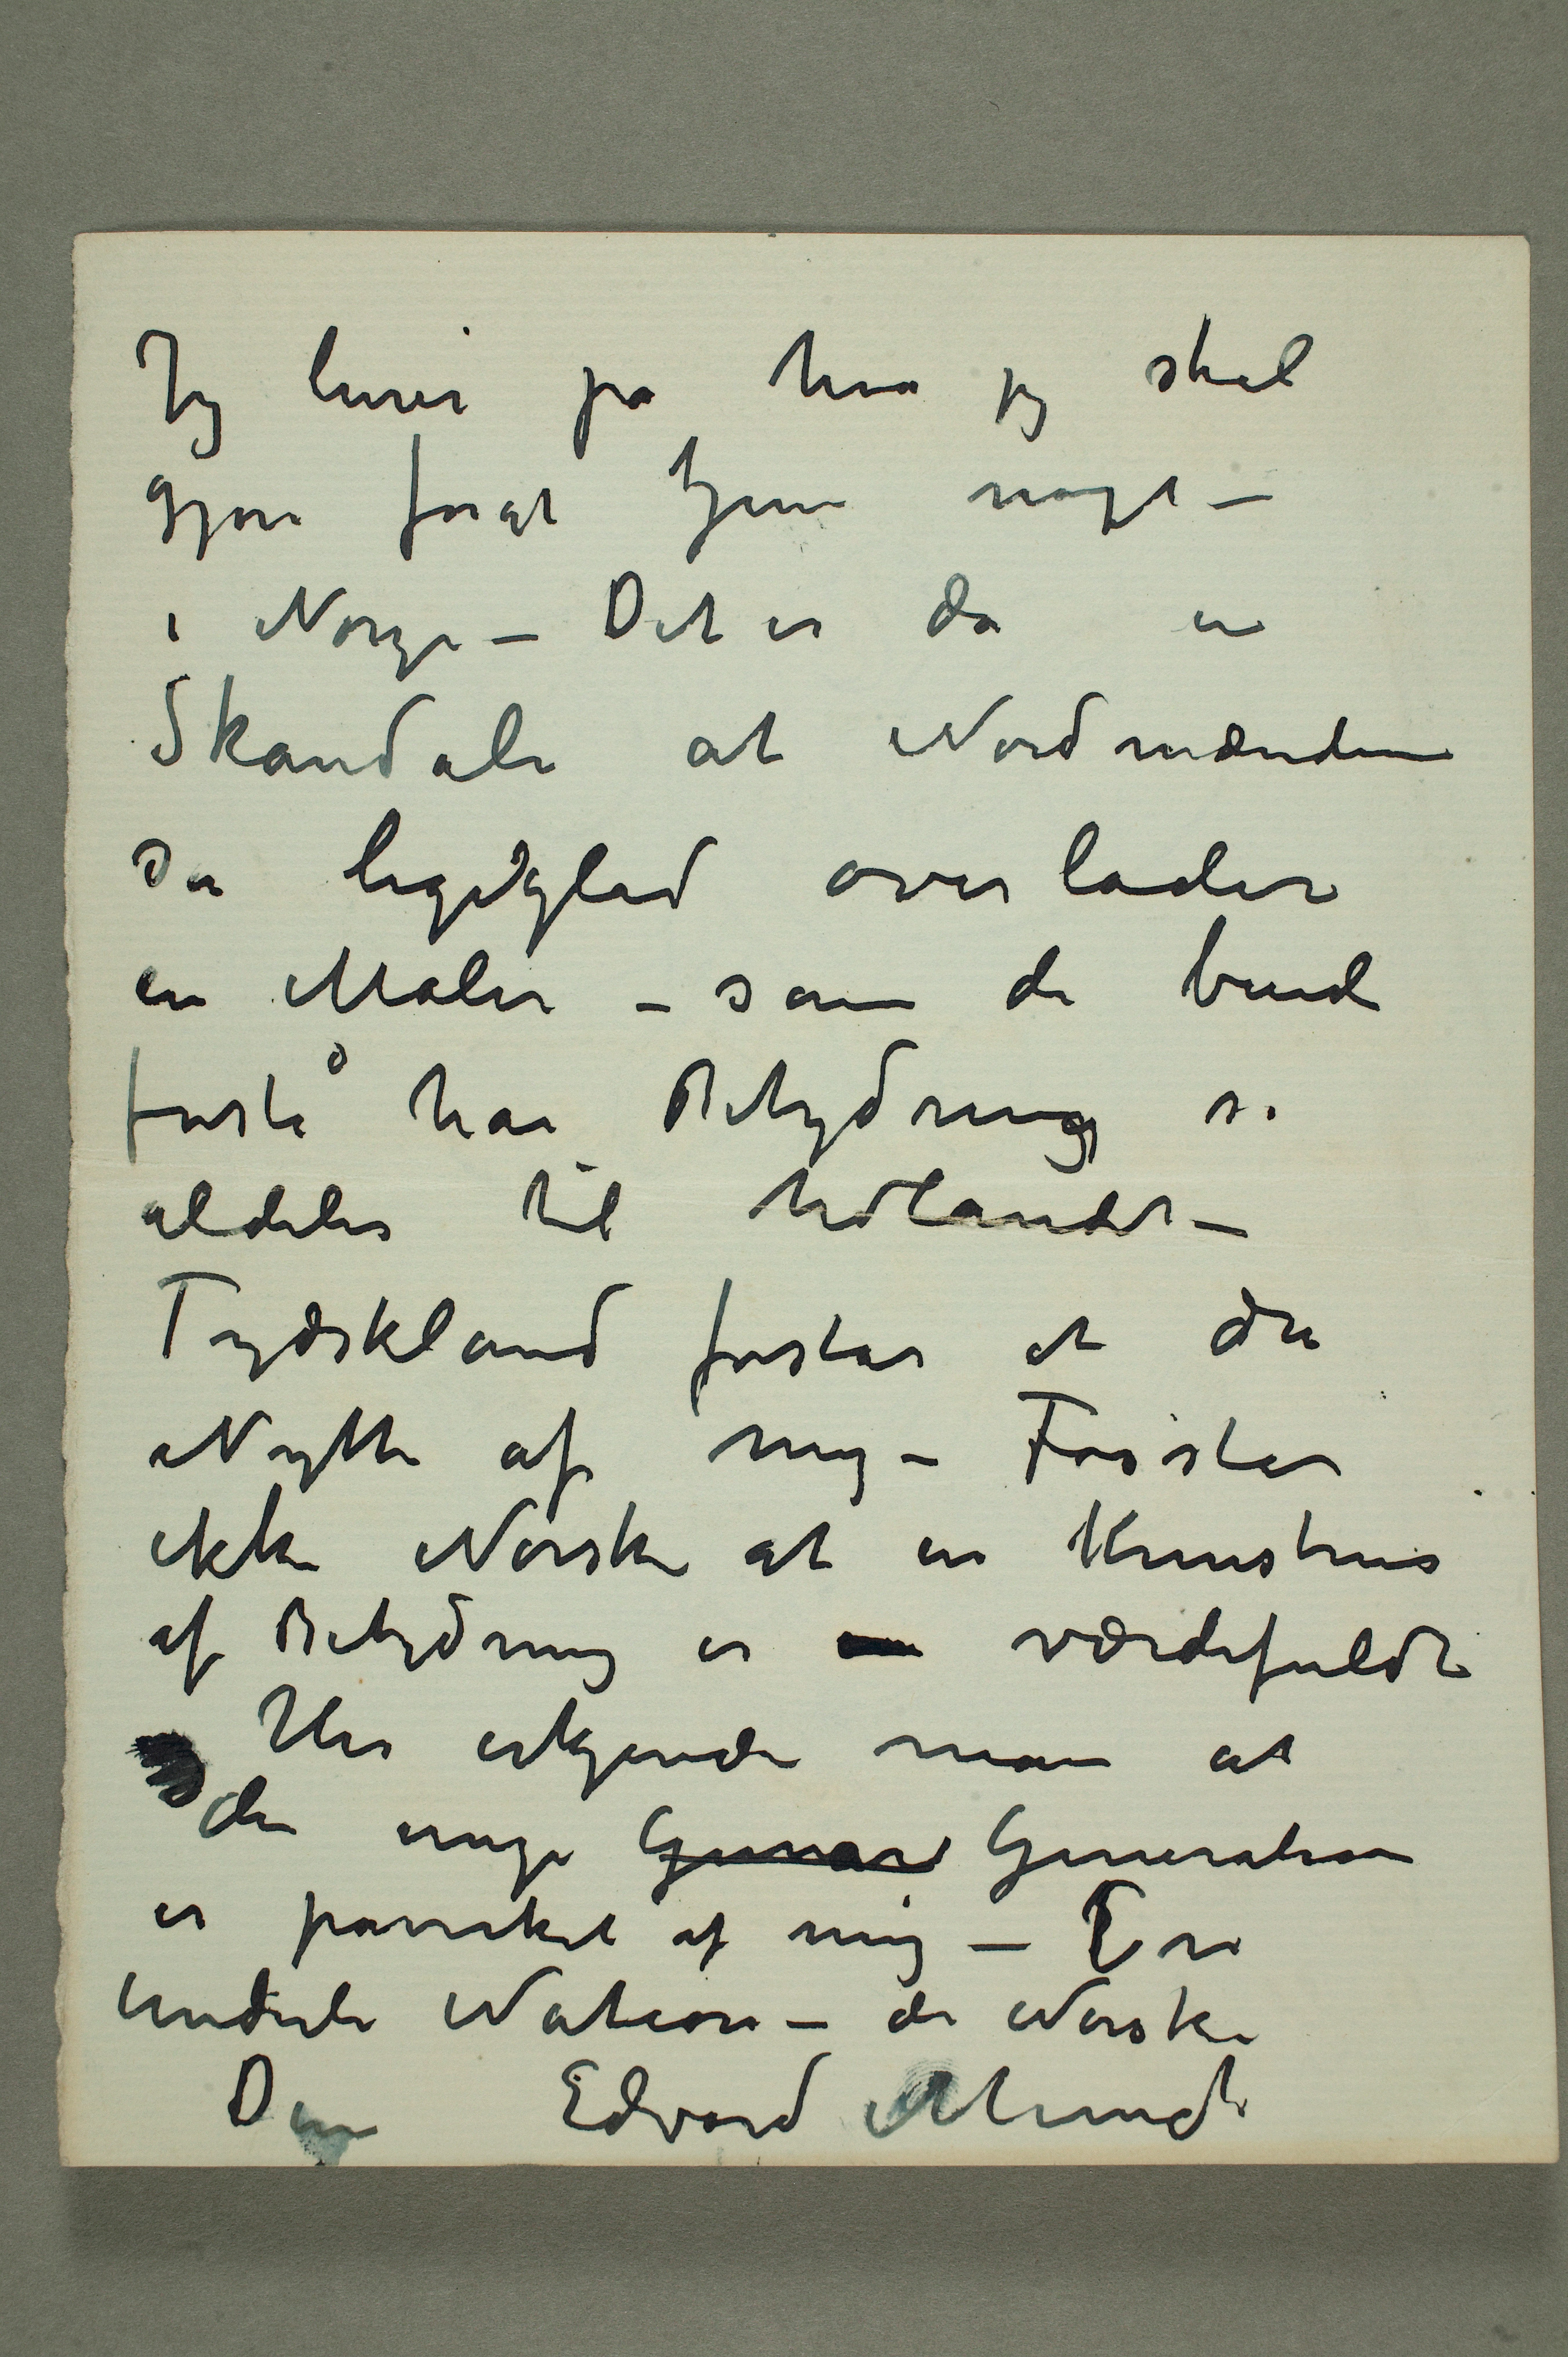 Jeg lurer på hva jeg skal
gjøre forat tjene noget –
i Norge – Det er da en
Skandale at Nordmændene
så ligeglad overlader
en Maler – som de burde
forstå har Betydning så
aldeles til Udlandet –
Tydskland forstår at dra
Nytte af mig – Forstår
ikke Norske at en Kunstner
af Betydning er værdifuldt
Her erkjender man at
den unge Generation
er påvirket af mig – En
underlig Nation – de Norske
Din Edvard Munch